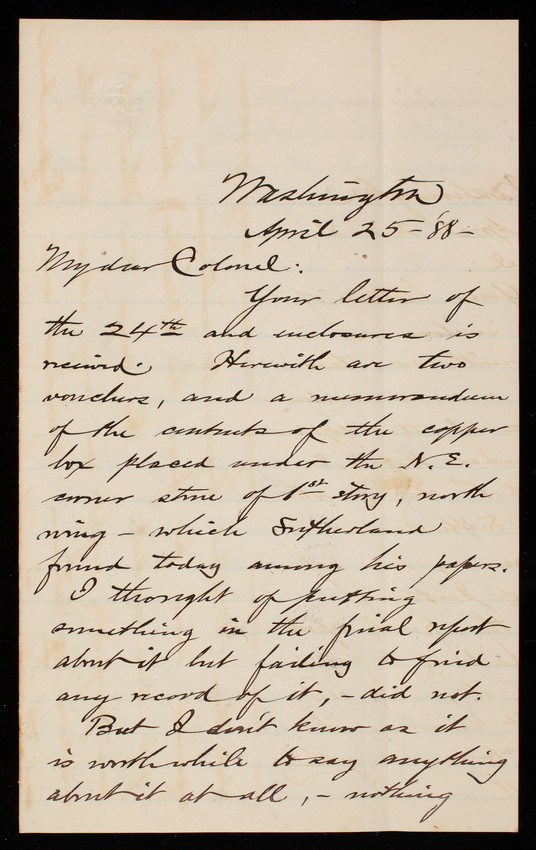 Washington
April 25 - '88 -
My dear Colonel:
Your letter of
the 24th and enclosures is
received. Herewith are two
vouchers, and a memorandum
of the contents of the copper
box placed under the N.E.
corner stone of 1st story, north
wing - which Sutherland
found today among his papers.
I thought of putting
something in the final report
about it but failing to find
any record of it, - did not.
But I don't know as it
is worth while to say anything
about it at all, - nothing